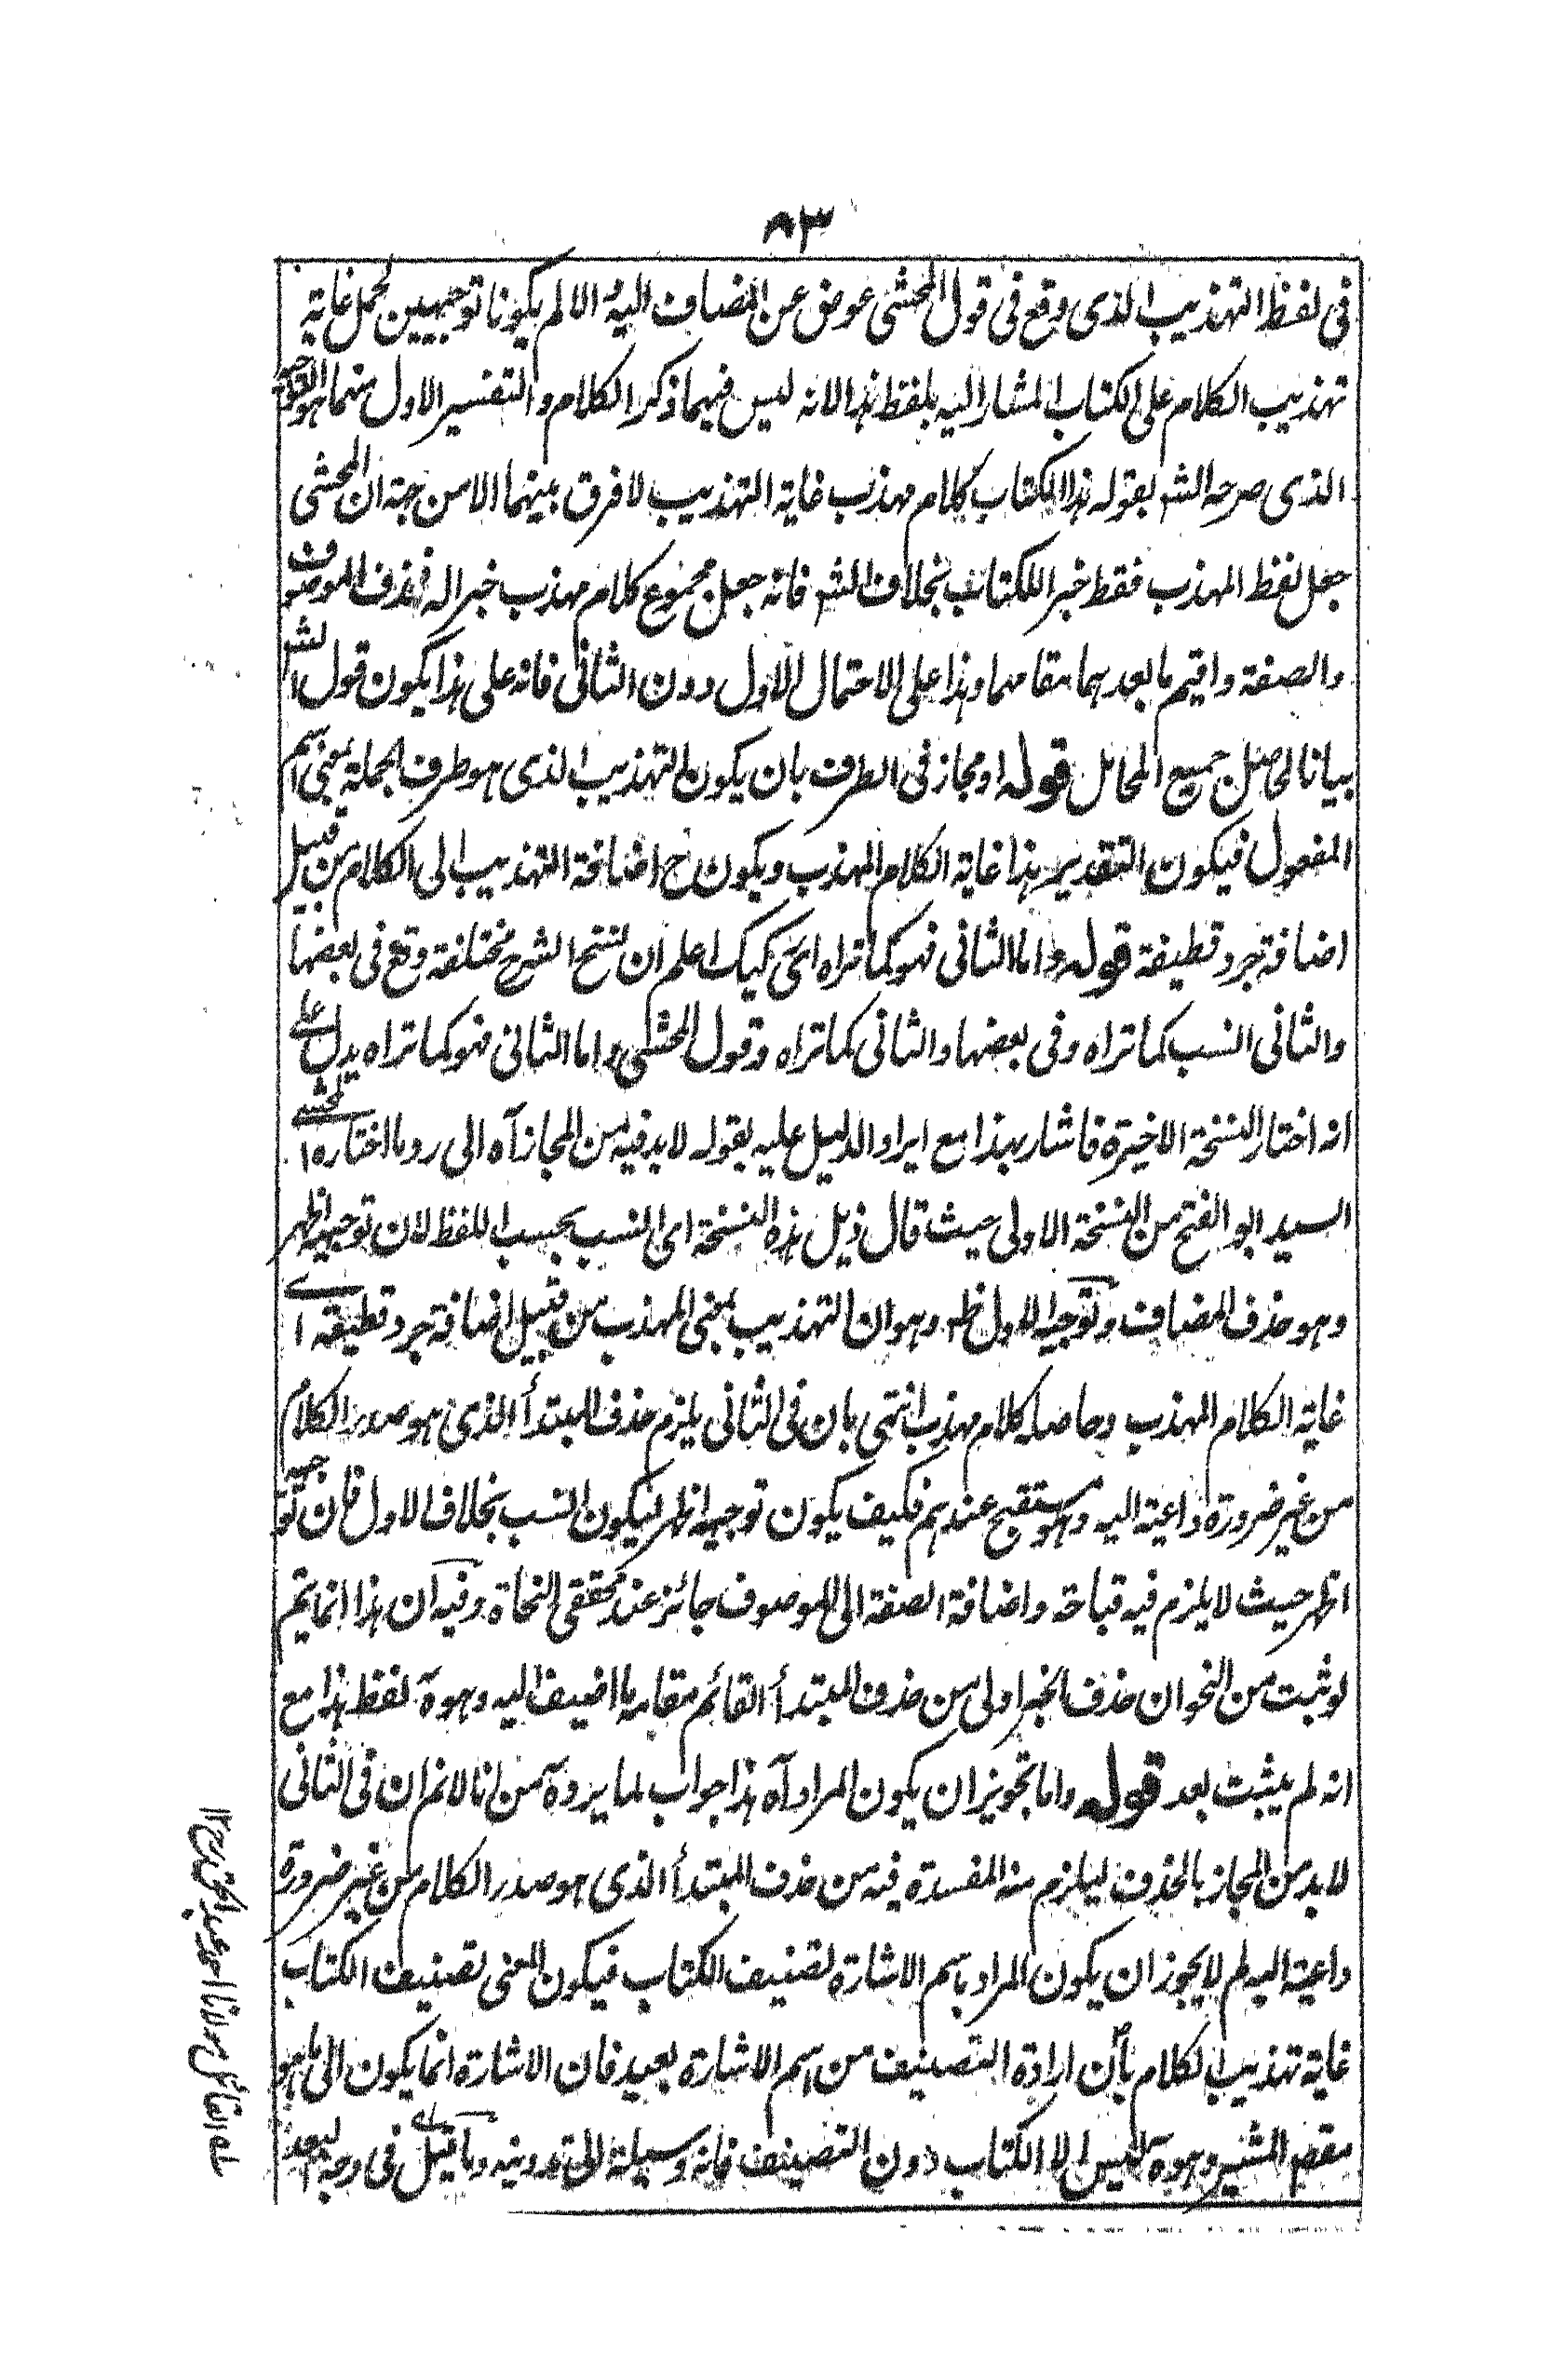 ٨٣
فى لفظ التهذيب الذى وقع فى قول المحشى عوض عن المضاف اليه والا لم يكونا توجيهين لحمل غاية
تهذيب الكلام على الكتاب المشار اليه بلفظ هذا لانه ليس فيما ذكر الكلام والتفسير الاول منهما هو التوجيه
الذى صرح الشر بقوله هذا الكتاب كلام مهذب غاية التهذيب لا فرق بينهما الا من جهة ان المحشى
جعل لفظ المهذب فقط خبرا للكتاب بخلاف الشر فانه جعل مجموع كلام مهذب خبرا له فحذف الموصوف
والصفة واقيم ما بعدهما مقامهما وهذا على الاحتمال الاول دون الثانى فانه على هذا يكون قول الشر
بيانا لحاصل جميع المحامل قوله او مجاز فى الطرف بان يكون التهذيب الذى هو طرف الجملة بمعنى اسم
المفعول فيكون التقدير هذا غاية الكلام المهذب ويكون ح اضافة التهذيب الى الكلام من قبيل
اضافة جرد قطيفة قوله واما الثانى فهو كما تراه اى ركيك اعلم ان نسخ الشرح مختلفة وقع فى بعضها
والثانى انسب كما تراه وفى بعضها والثانى كما تراه وقول المحشى واما الثانى فهو كما تراه يدل على
انه اختار النسخة الاخيرة فاشار بهذا مع ايراد الدليل عليه بقوله لا بد فيه من المجاز آه الى رد ما اختاره المحشى
السيد ابو الفتح من النسخة الاولى حيث قال ذيل هذه النسخة اى انسب بحسب اللفظ لان توجيهه اظهر
وهو حذف المضاف وتوجيه الاول ظ وهو ان التهذيب بمعنى المهذب من قبيل اضافة جرد قطيفة اى
غاية الكلام المهذب وحاصله كلام مهذب انتهى بان فى الثانى يلزم حذف المبتدأ الذى هو صدر الكلام
من غير ضرورة داعية اليه وهو مستقبح عندهم فكيف يكون توجيهه اظهر ليكون انسب بخلاف الاول فان توجيهه
اظهر حيث لا يلزم فيه قباحة واضافة الصفة الى الموصوف جائز عند محققى النحاة وفيه ان هذا انما يتم
لو ثبت من النحو ان حذف الخبر اولى من حذف المبتدأ القائم مقامه ما اضيف اليه وهو لفظ هذا مع
انه لم يثبت بعد قوله واما تجويز ان يكون المراد آه هذا جواب لما يرد من انا لا نم ان فى الثانى
لا بد من المجاز بالحذف ليلزم منه المفسدة فيه من حذف المبتدأ الذى هو صدر الكلام من غير ضرورة
داعية اليه لم لا يجوز ان يكون المراد باسم الاشارة تصنيف الكتاب فيكون المعنى تصنيف الكتاب
غاية تهذيب الكلام بأن ارادة التصنيف من اسم الاشارة بعيد فان الاشارة انما يكون الى ما هو
مقصد المشير وهو ليس الا الكتاب دون التصنيف فانه وسيلة الى تدوينه وما قيل فى وجه البعد